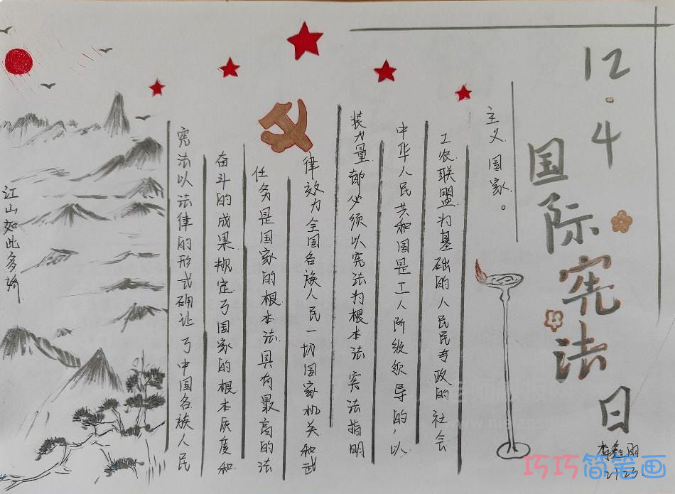 12.4
国际宪法日
江山如此多娇
宪法以法律的形式确认了中国各族人民
奋斗的成果规定了国家的根本度和
任务是国家的根本法具有最高的法
律效力全国各族人民一切国家机关和武
装力量都必须以宪法为根本法 宪法指明
中华人民共和国是工人阶级领导的,以
工农联盟为基础的人民民专政的社会
主义国家。
巧巧简笔画